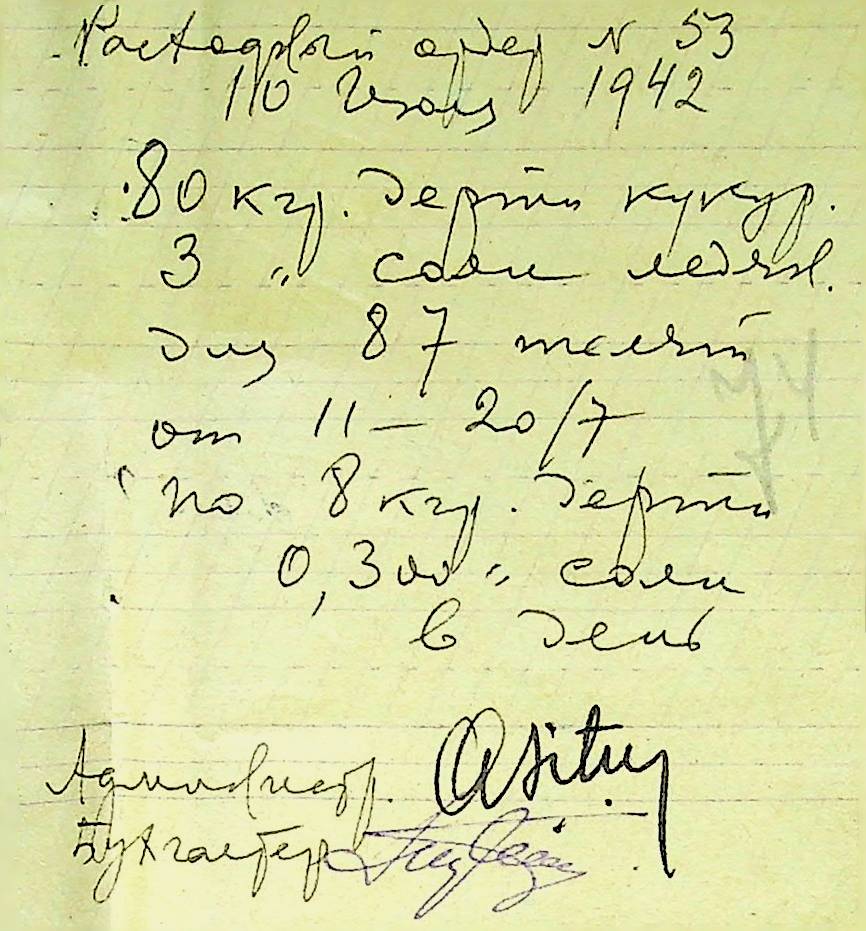 Расходный ордер N 53
10 Июля 1942
80 кгр. дерти кукур.
3 " соли ледян.
для 87 телят
от 11 — 20/7
74
по 8 кгр. дерти
0,300 " соли
в день
Администр.
Бухгалтер